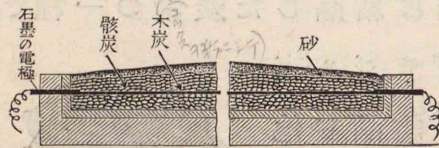 石墨の電極
骸炭
木炭
砂